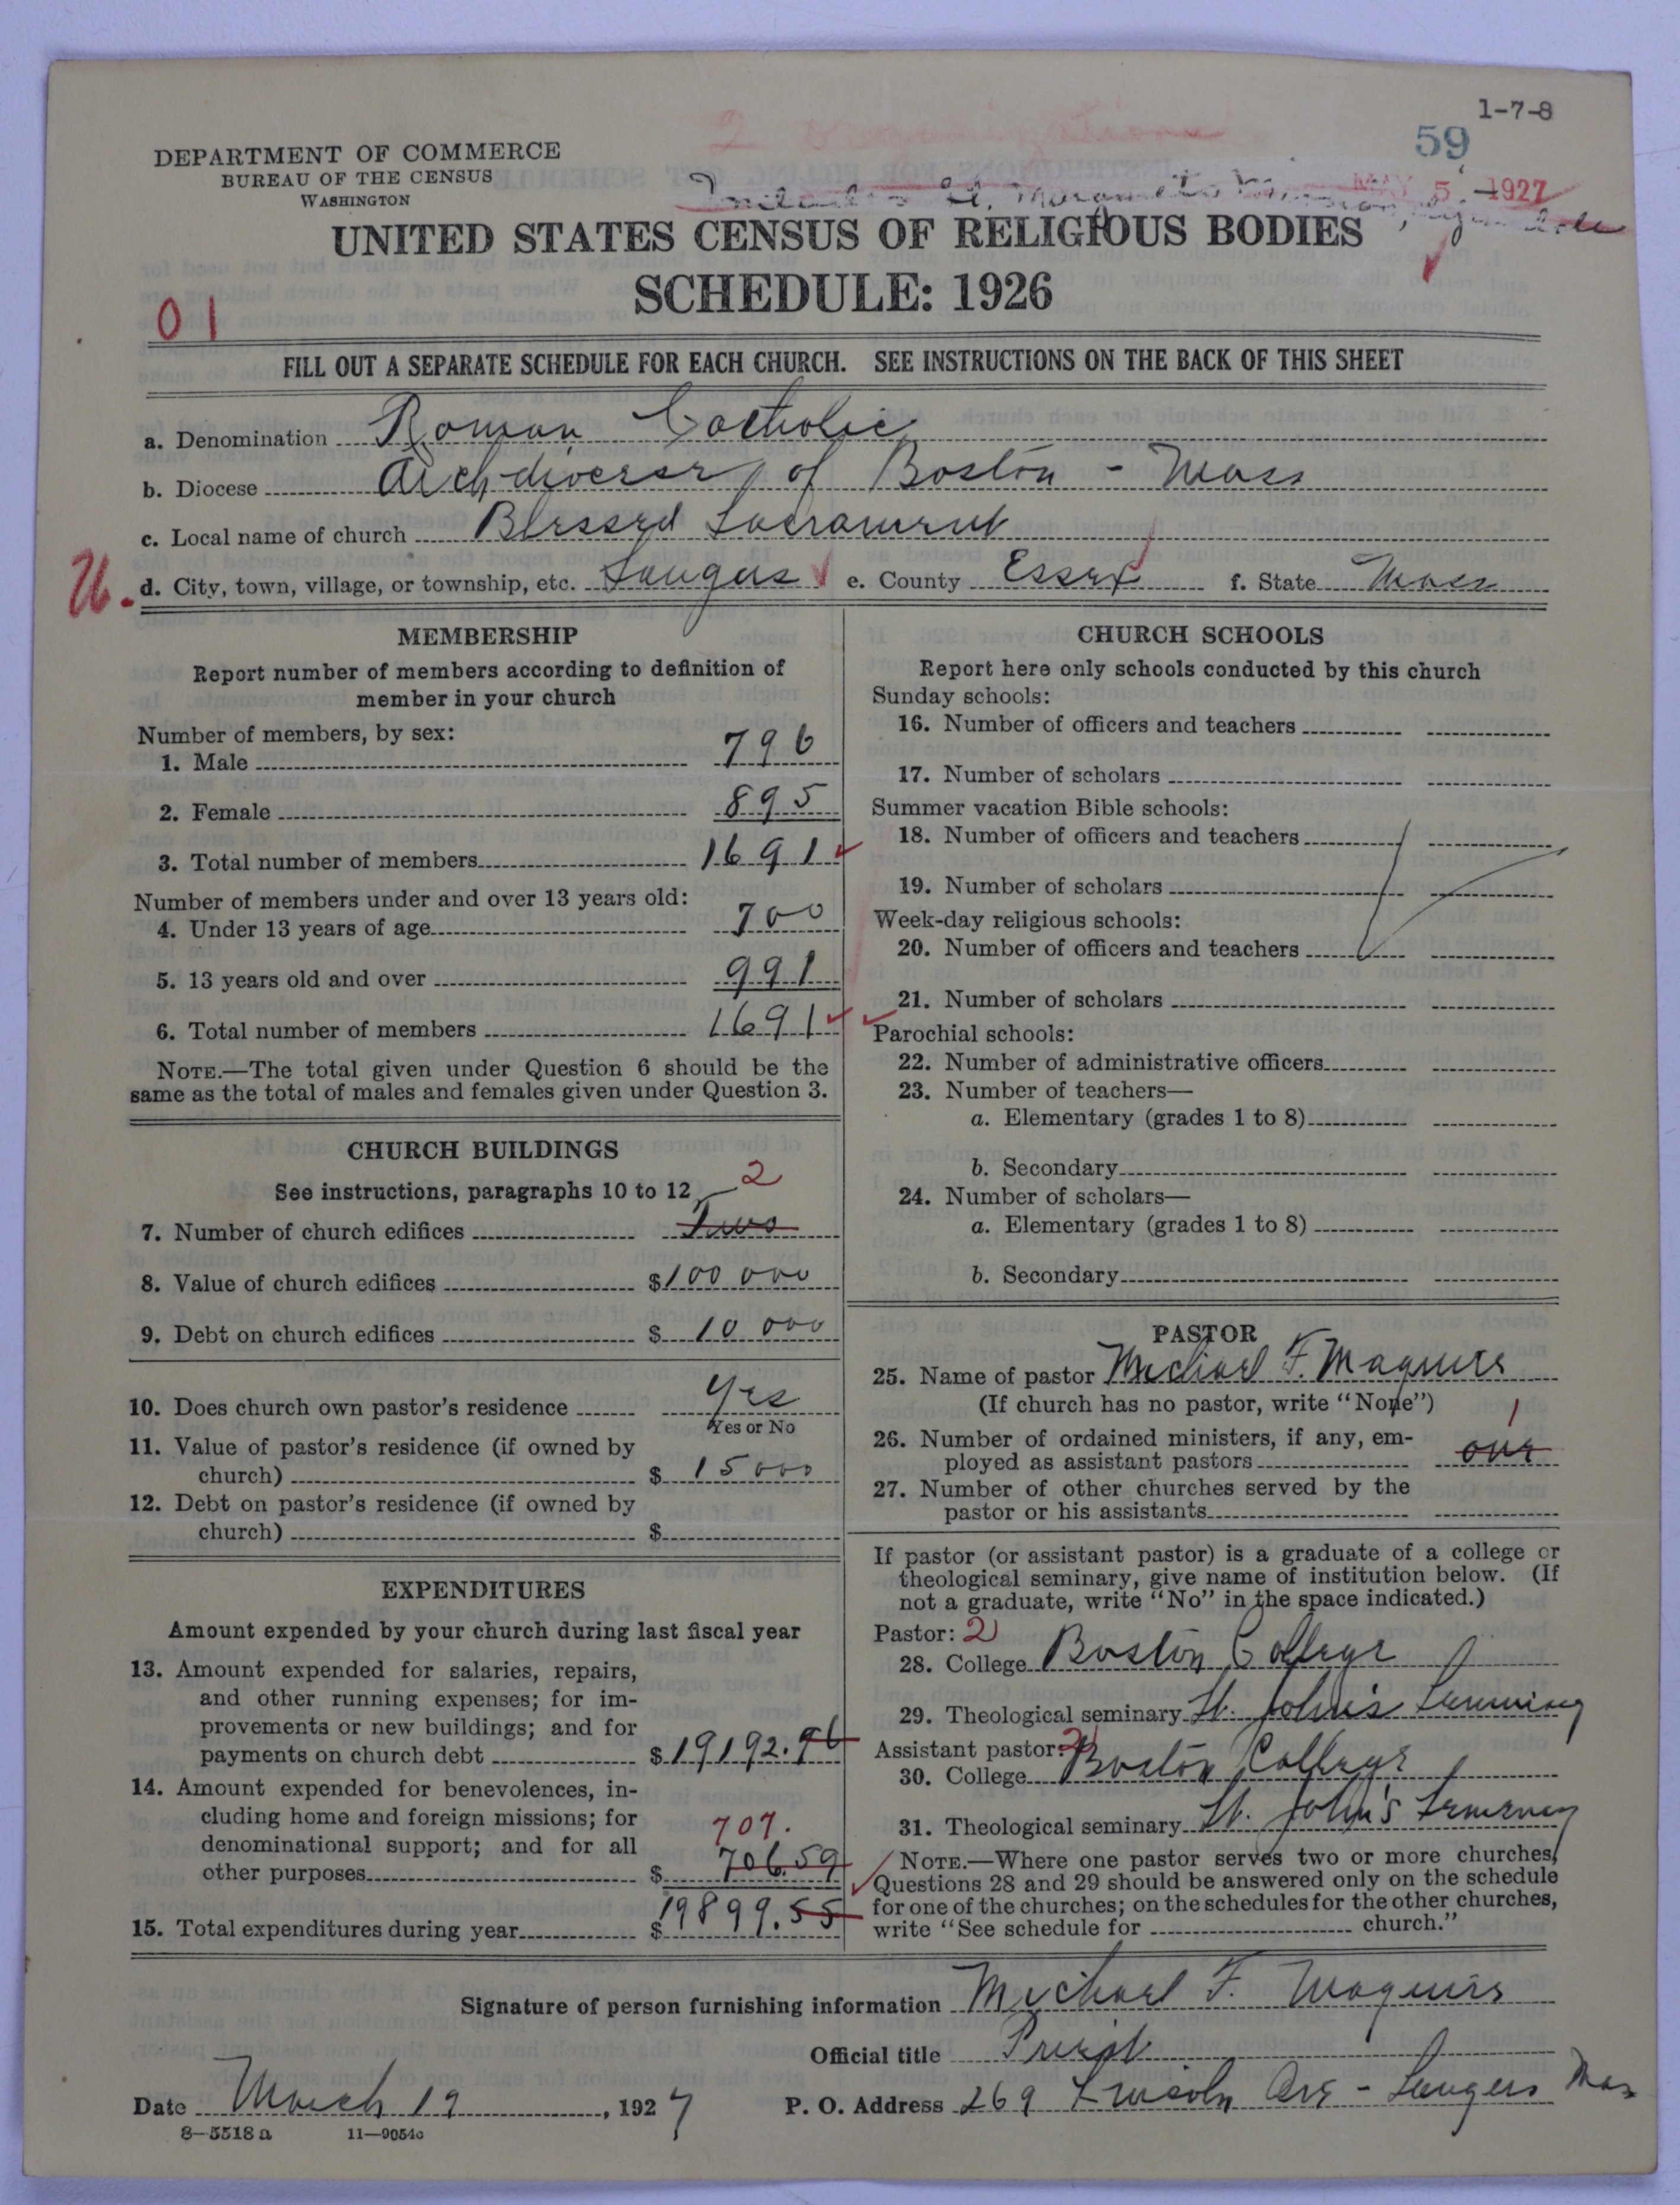 1-7-8
59
2 organizations
DEPARTMENT OF COMMERCE
BUREAU OF THE CENSUS
WASHINGTON
MAY 5 1927
Includes St. Margaret's Mission,
UNITED STATES CENSUS OF RELIGIOUS BODIES
SCHEDULE: 1926
01
FILL OUT A SEPARATE SCHEDULE FOR EACH CHURCH. SEE INSTRUCTIONS ON THE BACK OF THIS SHEET
a. Denomination Roman Catholic
b. Diocese Archdiocese of Boston - Mass
c. Local name of church Blessed Sacrament
U. d. City, town, village, or township, etc. Saugus e. County Essex f. State Mass
MEMBERSHIP
Report number of members according to definition of
member in your church
Number of members, by sex:
1. Male 796
2. Female 895
3. Total number of members 1691
Number of members under and over 13 years old:
4. Under 13 years of age 700
5. 13 years old and over 991
6. Total number of members 1691
NOTE.—The total given under Question 6 should be the
same as the total of males and females given under Question 3.
CHURCH BUILDINGS
See instructions, paragraphs 10 to 12
2
7. Number of church edifices Two
8. Value of church edifices $100 000
9. Debt on church edifices $ 10 000
10. Does church own pastor's residence Yes
Yes or No
11. Value of pastor's residence (if owned by
church) $ 15000
12. Debt on pastor's residence (if owned by
church) $
EXPENDITURES
Amount expended by your church during last fiscal year
13. Amount expended for salaries, repairs,
and other running expenses; for im-
provements or new buildings; and for
payments on church debt $19192.96
14. Amount expended for benevolences, in-
cluding home and foreign missions; for
denominational support; and for all
707.
other purposes $ 706.59
15. Total expenditures during year $19899.55
CHURCH SCHOOLS
Report here only schools conducted by this church
Sunday schools:
16. Number of officers and teachers
17. Number of scholars
Summer vacation Bible schools:
18. Number of officers and teachers
19. Number of scholars
Week-day religious schools:
20. Number of officers and teachers
21. Number of scholars
Parochial schools:
22. Number of administrative officers
23. Number of teachers—
a. Elementary (grades 1 to 8)
b. Secondary
24. Number of scholars—
a. Elementary (grades 1 to 8)
b. Secondary
PASTOR
25. Name of pastor Michael F. Maguire
(If church has no pastor, write "None")
1
26. Number of ordained ministers, if any, em-
ployed as assistant pastors one
27. Number of other churches served by the
pastor or his assistants
If pastor (or assistant pastor) is a graduate of a college or
theological seminary, give name of institution below. (If
not a graduate, write "No" in the space indicated.)
Pastor: 2
28. College Boston College
29. Theological seminary St. John's Seminary
Assistant pastor: 2
30. College Boston College
31. Theological seminary St. John's Seminary
NOTE.—Where one pastor serves two or more churches,
Questions 28 and 29 should be answered only on the schedule
for one of the churches; on the schedules for the other churches,
write "See schedule for church."
Signature of person furnishing information Michael F. Maguire
Official title Priest
Date March 19, 1927 P. O. Address 269 Lincoln Ave - Saugus Mass
8—5518 a 11—9054c